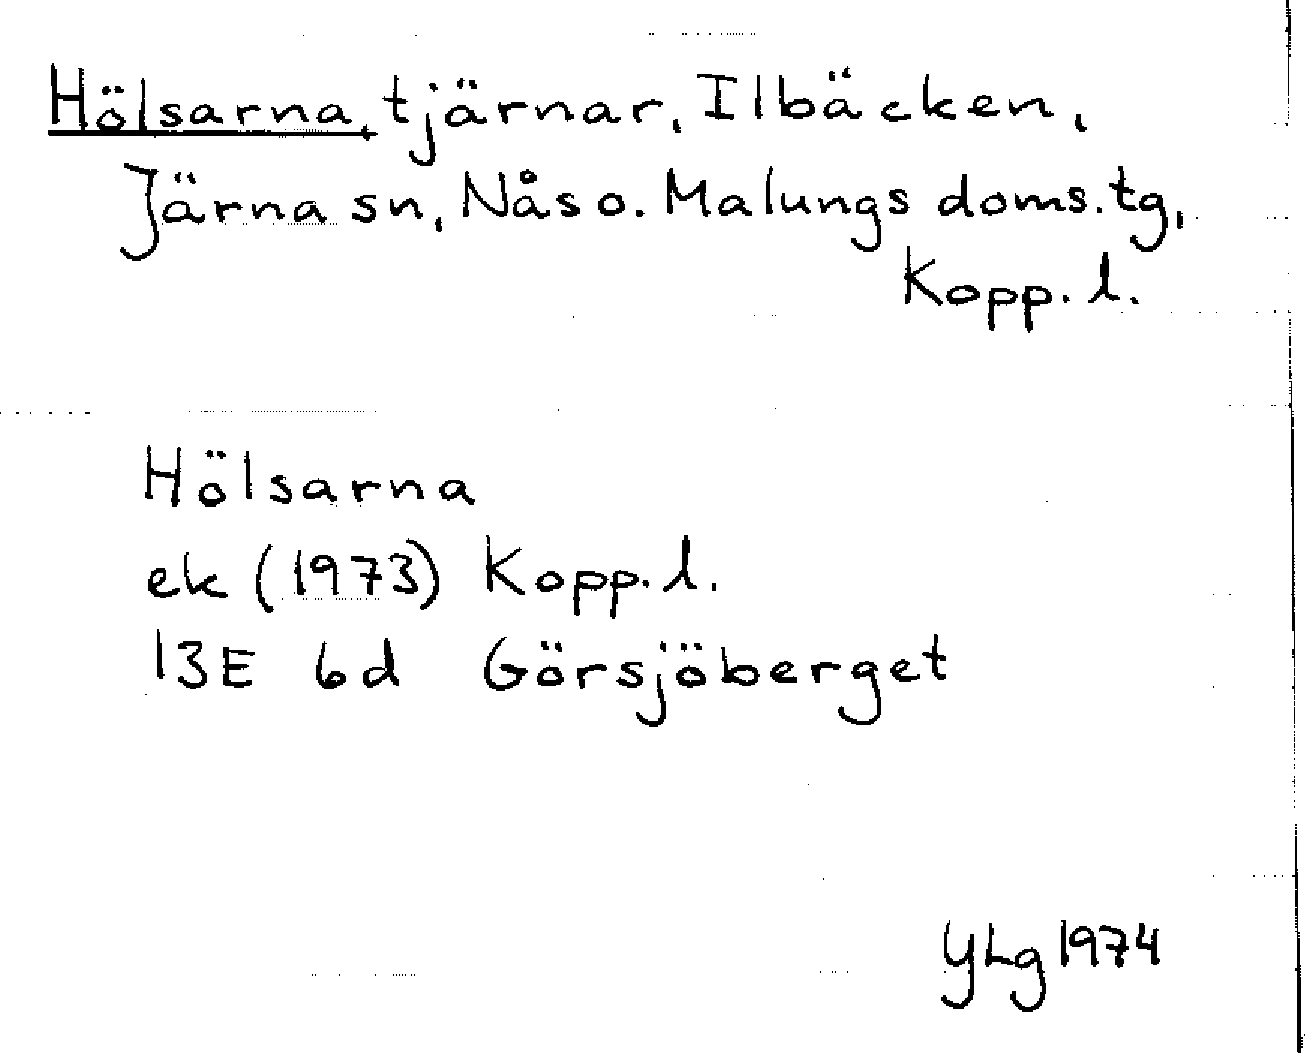 Hölsarna, tjärnar, Ilbäcken,
Järna sn, Nås o. Malungs doms.tg,
Kopp. l.
Hölsarna
ek (1973) Kopp. l.
13E 6d Görsjöberget
YLg 1974